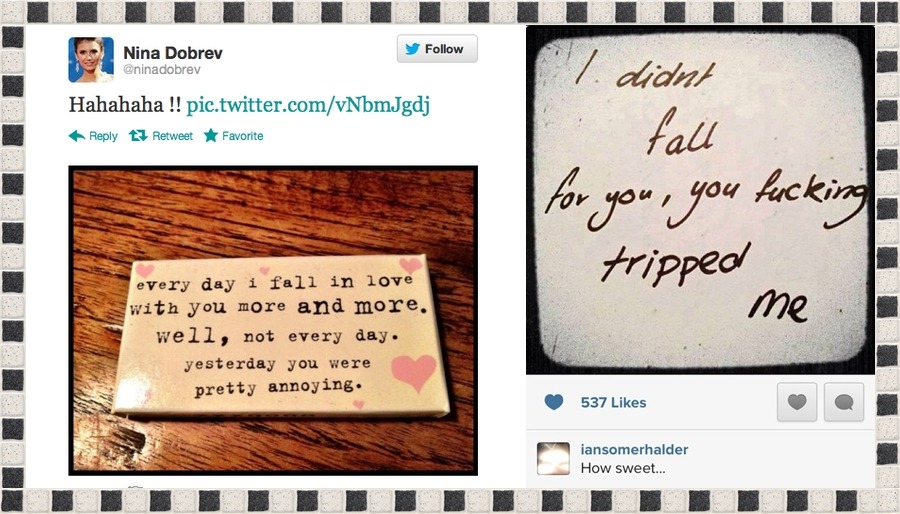 Nina Dobrev
@ninadobrev
Follow
Hahahaha !! pic.twitter.com/vNbmJgdj
Reply Retweet Favorite
every day i fall in love
with you more and more.
well, not every day.
yesterday you were
pretty annoying.
I didnt
fall
for you, you fucking
tripped
me
537 Likes
iansomerhalder
How sweet...